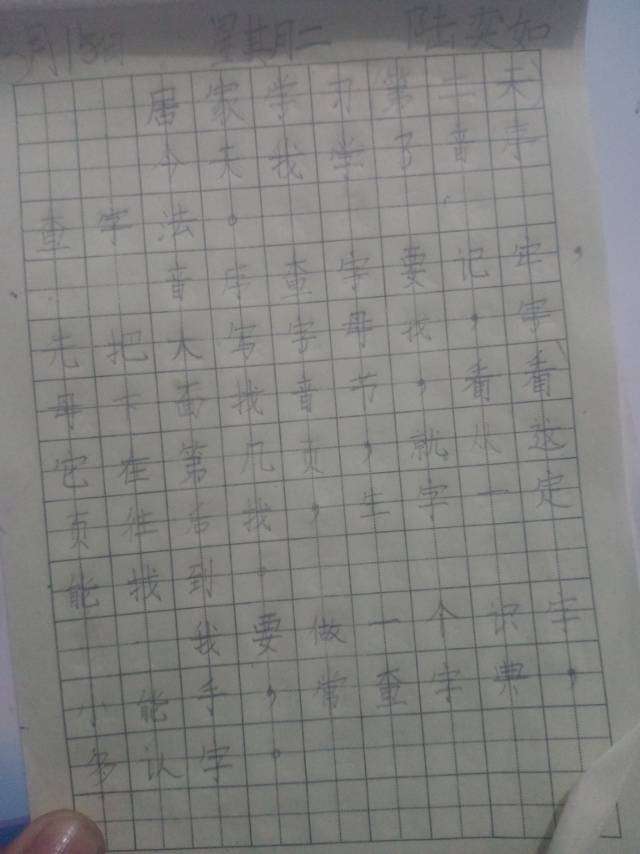 月15日 星期二 陆奕如
居家学习第二天
今天我学了音序
查字法。
音序查字要记牢,
先把大写字母找,字
母下面找音节,看看
它在第几页,就从这
页往后找,生字一定
能找到。
我要做一个识字
小能手,常查字典,
多认字。